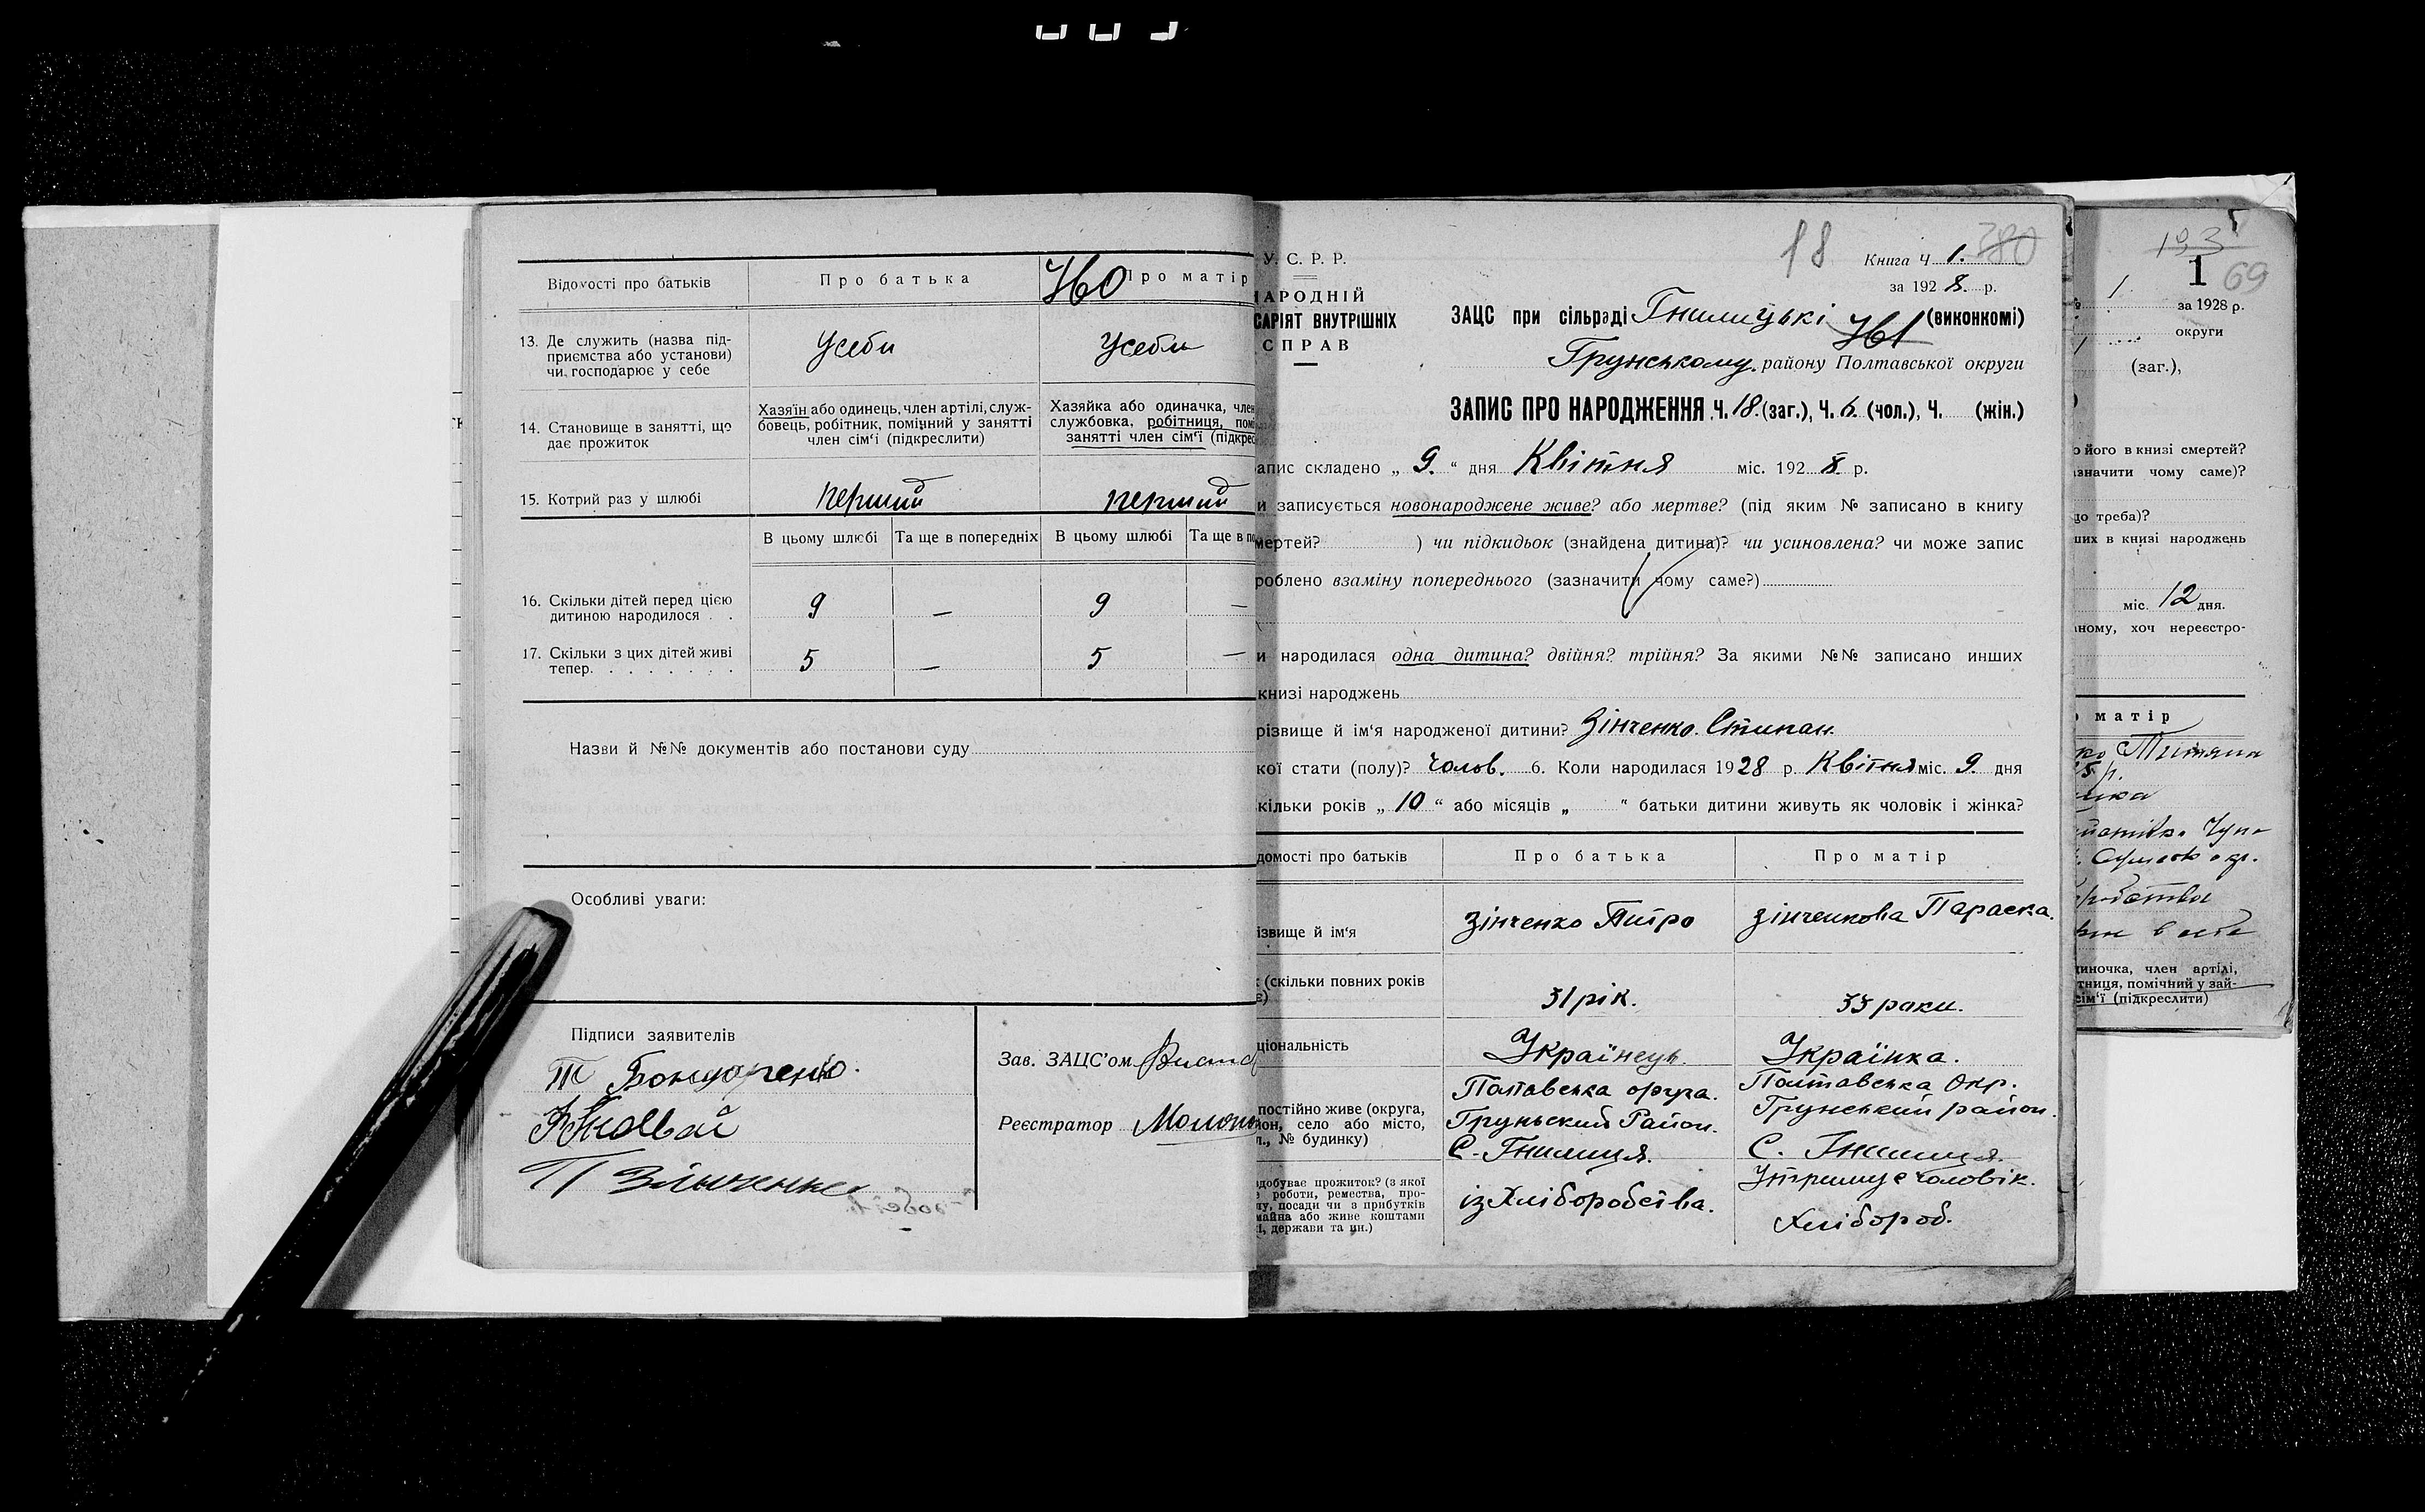 Відомості про батьків
Про батька
Про матір
460
13. Де служить (назва під-
приємства або установи)
чи господарює у себе
Усеби
Усеби
14. Становище в занятті, що
дає прожиток
Хазяїн або одинець, член артілі, служ-
бовець, робітник, помічний у занятті
член сім'ї (підкреслити)
Хазяйка або одиначка, член
службовка, робітниця, помі
занятті член сім'ї (підкрес
15. Котрий раз у шлюбі
перший
перший
В цьому шлюбі
Та ще в попередніх
В цьому шлюбі
Та ще в по
16. Скільки дітей перед цією
дитиною народилося . .
9
—
9
—
17. Скільки з цих дітей живі
тепер. . . . . . . .
5
—
5
—
Назви й №№ документів або постанови суду
Особливі уваги:
Підписи заявителів
Т Бондаренко.
П Зінченко
Зав. ЗАЦС'ом
Реєстратор
У. С. Р. Р.
НАРОДНІЙ
САРІЯТ ВНУТРІШНІХ
СПРАВ
18
380
Книга Ч 1.
за 1928. р.
ЗАЦС при сільраді Гнилицькі (виконкомі)
461
Грунському району Полтавської округи
ЗАПИС ПРО НАРОДЖЕННЯ Ч. 18. (заг.), Ч. 6. (чол.), Ч. (жін.)
апис складено „ 9. “ дня Квітня міс. 1928. р.
и записується новонароджене живе? або мертве? (під яким № записано в книгу
мертей? ) чи підкидьок (знайдена дитина)? чи усиновлена? чи може запис
роблено взаміну попереднього (зазначити чому саме?)
и народилася одна дитина? двійня? трійня? За якими №№ записано инших
книзі народжень
різвище й ім'я народженої дитини? Зінченко. Стипан.
кої стати (полу)? чолов. 6. Коли народилася 1928 р. Квітня міс. 9. дня
кільки років „ 10 “ або місяців „ “ батьки дитини живуть як чоловік і жінка?
домості про батьків
Про батька
Про матір
ізвище й ім'я
Зінченко Питро
Зінченкова Параска.
(скільки повних років
є)
31 рік.
33 роки.
ціональність
Українець.
Українка.
постійно живе (округа,
йон, село або місто,
л., № будинку)
Полтавська округа.
Груньский Район.
С. Гнилиця.
Полтавська Окр.
Грунський район.
С. Гнилиця.
добуває прожиток? (з якої
роботи, ремества, про-
у, посади чи з прибутків
майна або живе коштами
ї, держави та ин.)
із Хліборобства.
Утримує чоловік.
Хлібороб.
193
1
69
1.
за 1928 р.
округи
(заг.),
о його в книзі смертей?
азначити чому саме)?
до треба)?
ших в книзі народжень
міс. 12 дня.
ному, хоч нереєстро-
матір
ко Титяна
5 р.
диночка, член артілі,
тниця, помічний у зай-
сім'ї (підкреслити)